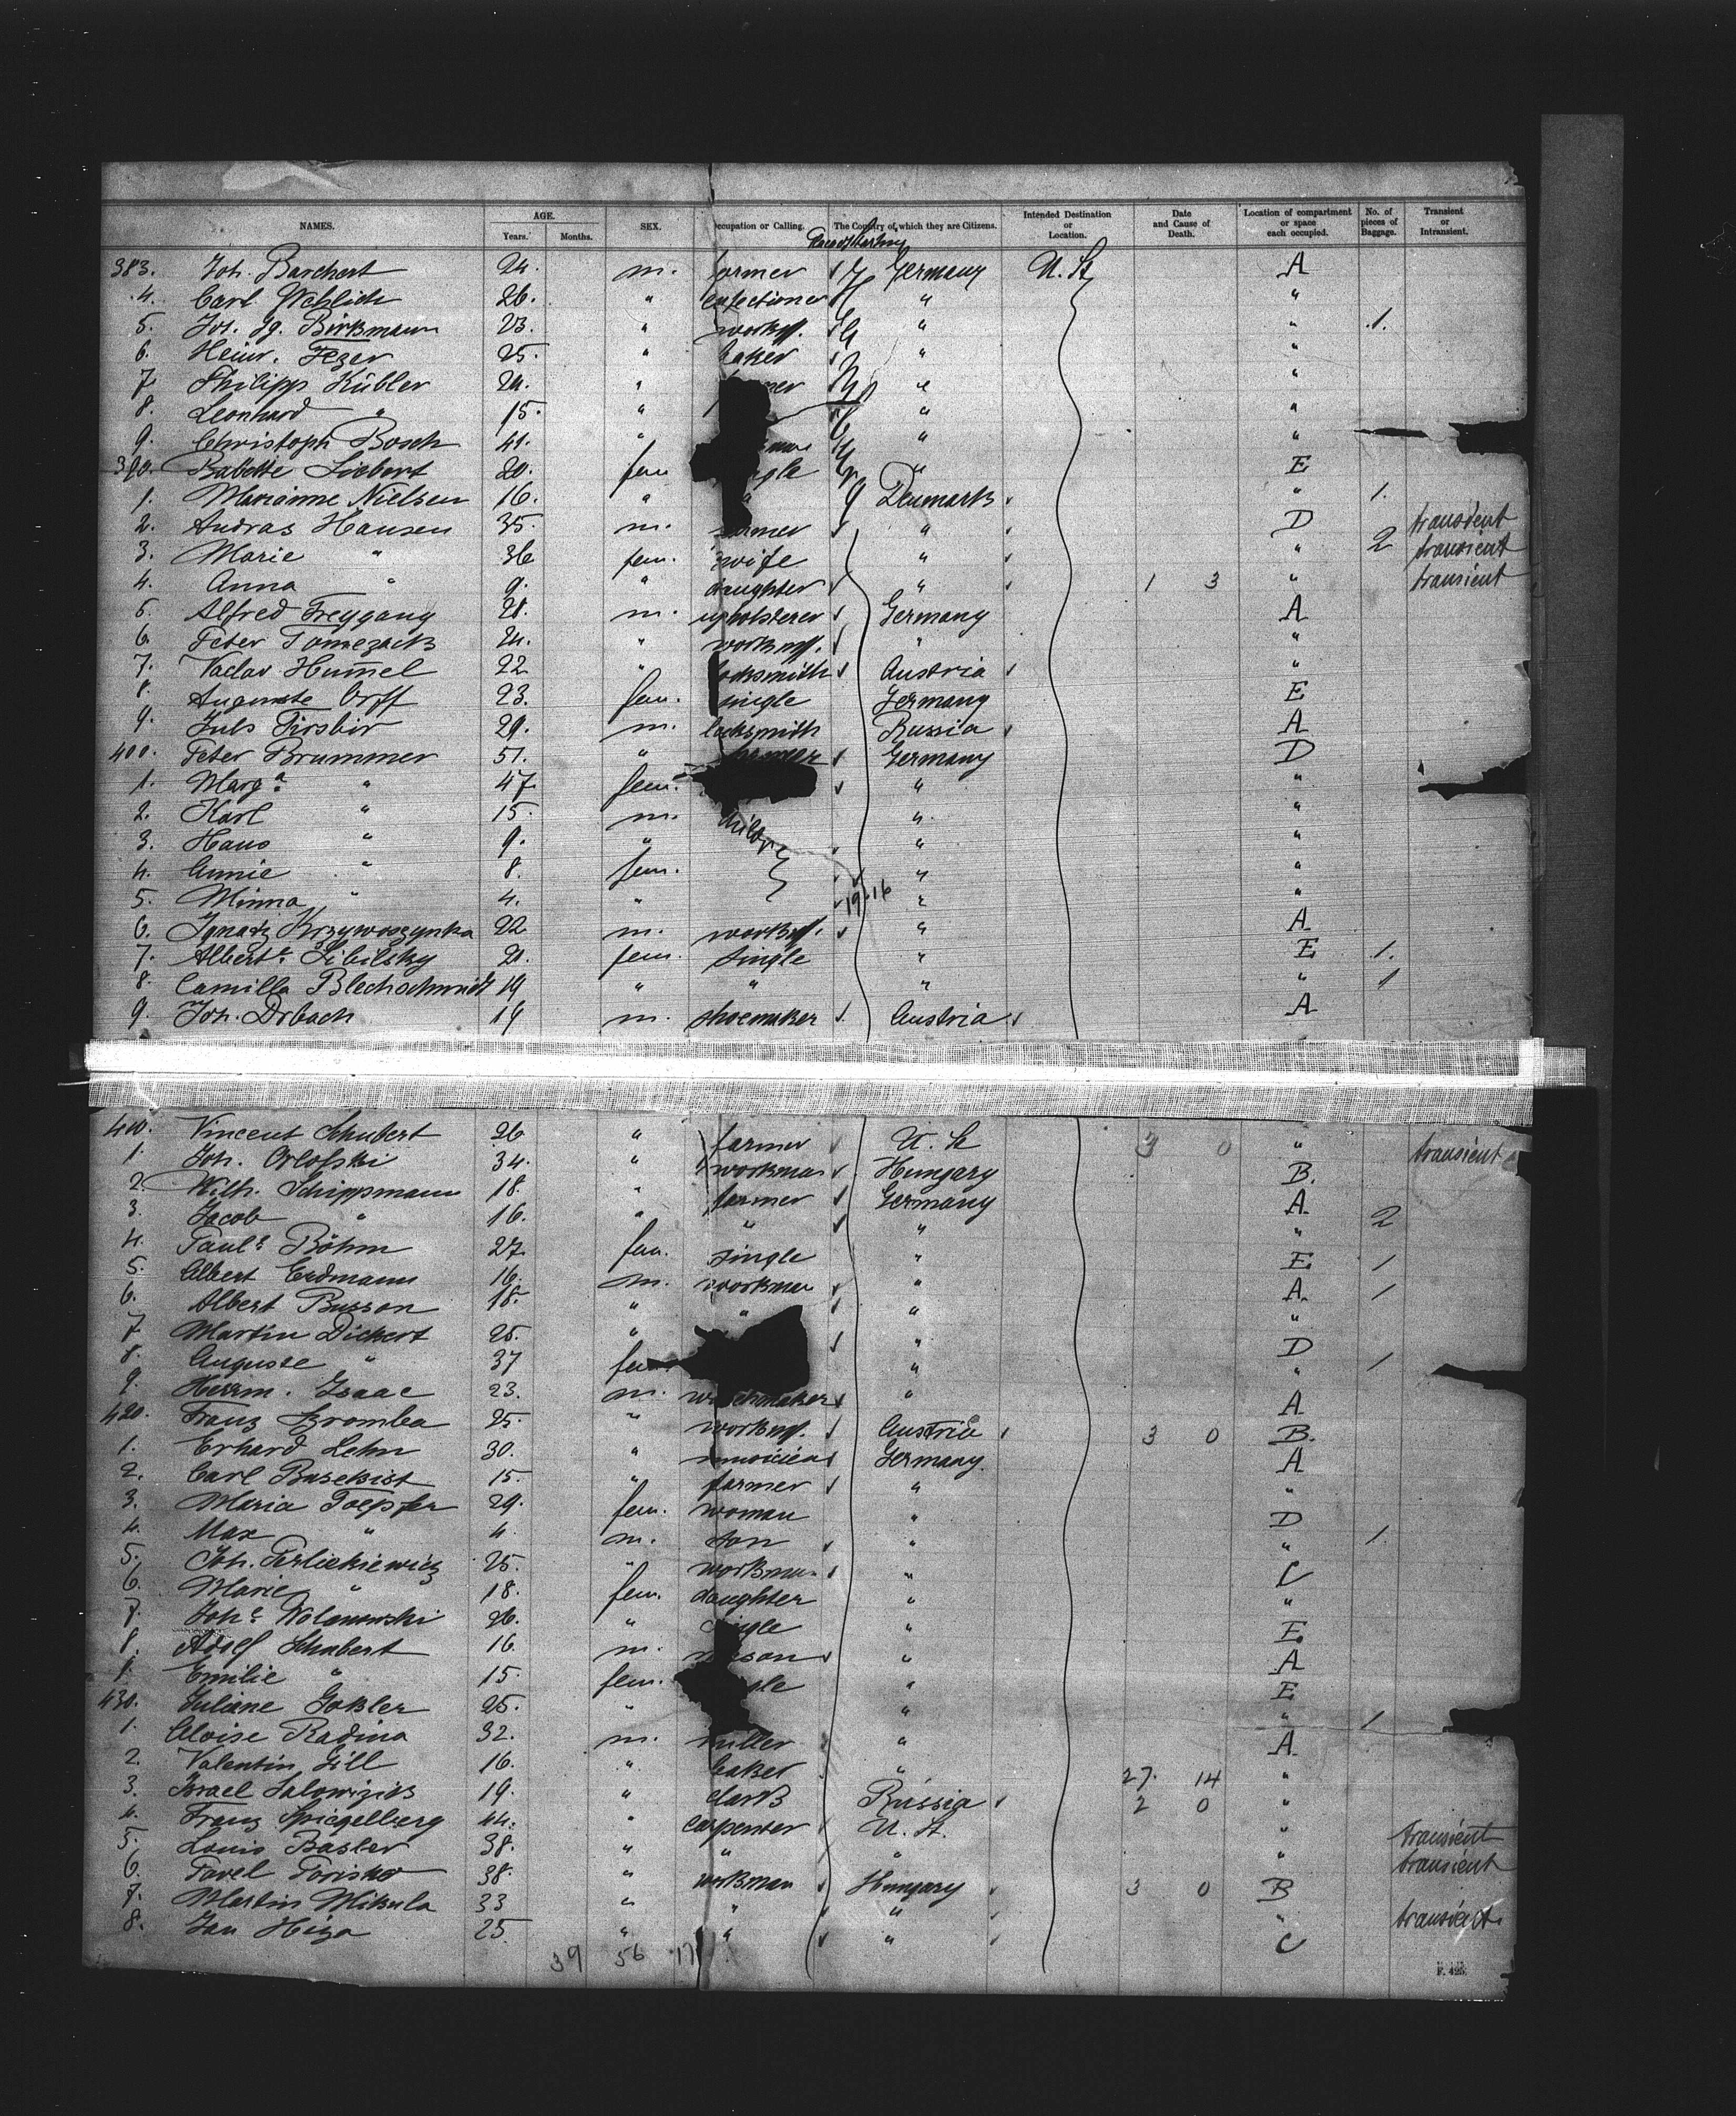 NAMES. AGE. Years. Months. SEX. Occupation or Calling. The Country of which they are Citizens. Intended Destination or Location. Date and Cause of Death. Location of compartment or space each occupied. No. of pieces of Baggage. Transient or Intransient.
383. Joh. Barchert 24. m. farmer Germany U. St A
4. Carl Wehlich 26. " confectioner " "
5. Joh. Jg. Birkmann 23. " workm. " " 1.
6. Heinr. Fezer 25. " baker " "
7. Philipp Kübler 24. " " "
8. Leonhard " 15. " " "
9. Christoph Bosch 41. " " "
390. Babette Siebert 20. fem single " E
1. Marianne Nielsen 16. " " Denmark " 1.
2. Andras Hansen 35. m. farmer " D transient
3. Marie " 36 fem. wife " " 2 transient
4. Anna " 9. " daughter " 1 3 " transient
5. Alfred Freygang 28. m. upholsterer Germany A
6. Peter Tomezack 24. " workm. " "
7. Vaclav Hummel 22 " locksmith Austria "
8. Auguste Orff 23. fem. single Germany E
9. Juls 29. m. locksmith Russia A
400. Peter Brummer 51. " farmer Germany D
1. Marga " 47. fem. " "
2. Karl " 15. m. children " "
3. Hans " 9. " " "
4. Annie " 8. fem. " "
5. Minna " 4. " 19.16 " "
6. Ignatz Krzywoszynka 22 m. workm. " A
7. Albert. Sibilsky 21. fem. single " E 1.
8. Camilla Blechschmidt 19 " " " " 1
9. Joh. Drbach 19 m. shoemaker Austria A
410. Vincent Schubert 26 " farmer U. St 3 0 " transient
1. Joh. Orlofski 34. " workman Hungary B.
2. Wilh. Schippmann 18. " farmer Germany A
3. Jacob " 16. " " " " 2
4. Paul. Böhm 27. fem. single " E 1
5. Albert Erdmann 16. m. workman " A 1
6. Albert Busson 18. " " " "
7. Martin Dickert 25. " " D
8. Auguste " 37 fem. " " 1
9. Herrm. Isaac 23. m. " A
420. Franz Szromba 25. " workm. Austria 3 0 B.
1. Erhard Lehn 30. " musician Germany. A
2. Carl Basekist 15. " farmer " "
3. Maria Toepfer 29. fem. woman " D
4. Max " 4. m. son " " 1.
5. Joh. Perlickiewicz 25. " workman " C
6. Marie " 18. fem. daughter " "
7. Joh. Wolanowski 26. " single " E.
8. Adolf Schubert 16. m. mason " A
9. Emilie " 15. fem. single " E
430. Juliane Goksler 25. " " " 1
1. Aloise Radina 32. m. miller " A
2. Valentin Gill 16. " baker " 27. 14 "
3. Israel 19. " clark Russia 2 0 "
4. Franz Spiegelberg 44. " carpenter U. St. " transient
5. Louis Basler 38. " " " " transient
6. Pavel Torisko 38. " workman Hungary 3 0 B
7. Martin Mikula 33 " " " " transient.
8. Jan Hiza 25. " " " C
39 56 17
F. 425.